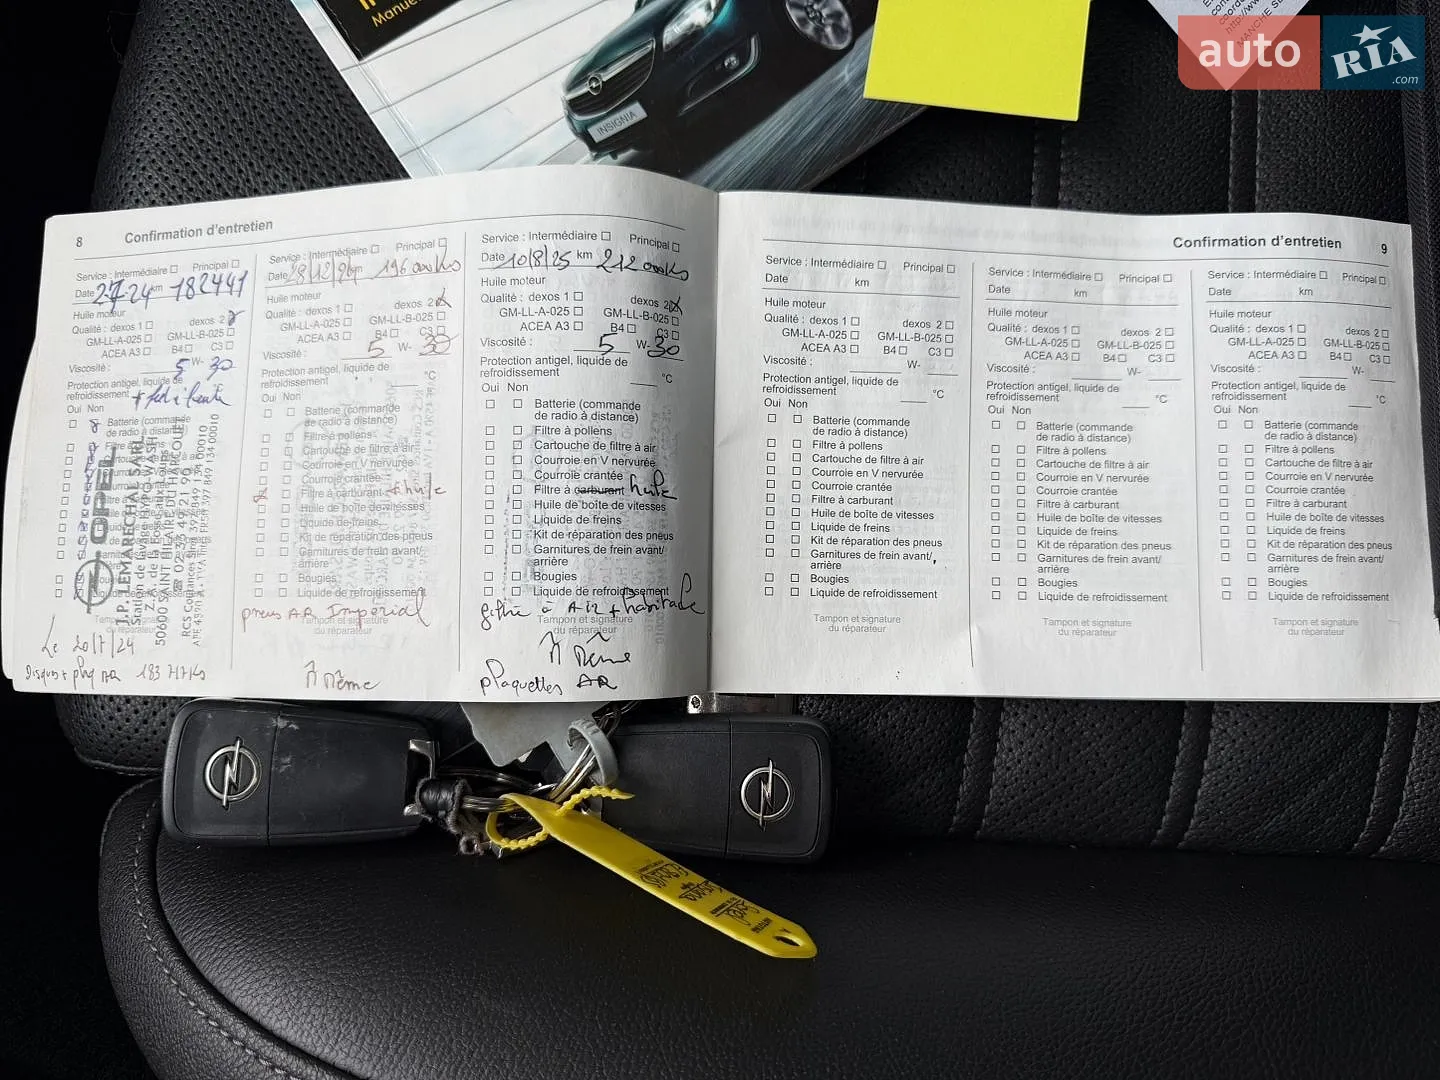 Manuel
INSIGNIA
auto
RIA
.com
8
Confirmation d'entretien
Service : Intermédiaire ☐ Principal ☐
Date 27-24 km 182441
Huile moteur
Qualité : dexos 1 ☐ dexos 2
GM-LL-A-025 ☐ GM-LL-B-025 ☐
ACEA A3 ☐ B4 ☐ C3 ☐
Viscosité : 5 W- 30
Protection antigel, liquide de
refroidissement
Oui Non
Batterie (commande
de radio à distance)
OPEL
J.P. LEMARECHAL SARL
50600 SAINT HILAIRE DU HARCOUET
Le 20/7/24
Disques + plaq AR 183 717 Ks
Service : Intermédiaire ☐ Principal ☐
Date 28/12/24 km 196 000 Ks
Huile moteur
Qualité : dexos 1 ☐ dexos 2
GM-LL-A-025 ☐ GM-LL-B-025 ☐
ACEA A3 ☐ B4 ☐ C3 ☐
Viscosité : 5 W- 30
Protection antigel, liquide de
refroidissement °C
Oui Non
Batterie (commande
de radio à distance)
Filtre à pollens
Cartouche de filtre à air
Courroie en V nervurée
Courroie crantée
Filtre à carburant + huile
Huile de boîte de vitesses
Liquide de freins
Kit de réparation des pneus
Garnitures de frein avant/
arrière
Bougies
Liquide de refroidissement
pneus AR Imperial
Tampon et signature
du réparateur
Même
Service : Intermédiaire ☐ Principal ☐
Date 10/8/25 km 212 000 Ks
Huile moteur
Qualité : dexos 1 ☐ dexos 2
GM-LL-A-025 ☐ GM-LL-B-025 ☐
ACEA A3 ☐ B4 ☐ C3 ☐
Viscosité : 5 W- 30
Protection antigel, liquide de
refroidissement °C
Oui Non
Batterie (commande
de radio à distance)
Filtre à pollens
Cartouche de filtre à air
Courroie en V nervurée
Courroie crantée
Filtre à carburant huile
Huile de boîte de vitesses
Liquide de freins
Kit de réparation des pneus
Garnitures de frein avant/
arrière
Bougies
Liquide de refroidissement
filtre à Air + habitacle
Tampon et signature
du réparateur
Même
plaquettes AR
Confirmation d'entretien
9
Service : Intermédiaire ☐ Principal ☐
Date km
Huile moteur
Qualité : dexos 1 ☐ dexos 2 ☐
GM-LL-A-025 ☐ GM-LL-B-025 ☐
ACEA A3 ☐ B4 ☐ C3 ☐
Viscosité : W-
Protection antigel, liquide de
refroidissement °C
Oui Non
Batterie (commande
de radio à distance)
Filtre à pollens
Cartouche de filtre à air
Courroie en V nervurée
Courroie crantée
Filtre à carburant
Huile de boîte de vitesses
Liquide de freins
Kit de réparation des pneus
Garnitures de frein avant/
arrière
Bougies
Liquide de refroidissement
Tampon et signature
du réparateur
Service : Intermédiaire ☐ Principal ☐
Date km
Huile moteur
Qualité : dexos 1 ☐ dexos 2 ☐
GM-LL-A-025 ☐ GM-LL-B-025 ☐
ACEA A3 ☐ B4 ☐ C3 ☐
Viscosité : W-
Protection antigel, liquide de
refroidissement °C
Oui Non
Batterie (commande
de radio à distance)
Filtre à pollens
Cartouche de filtre à air
Courroie en V nervurée
Courroie crantée
Filtre à carburant
Huile de boîte de vitesses
Liquide de freins
Kit de réparation des pneus
Garnitures de frein avant/
arrière
Bougies
Liquide de refroidissement
Tampon et signature
du réparateur
Service : Intermédiaire ☐ Principal ☐
Date km
Huile moteur
Qualité : dexos 1 ☐ dexos 2 ☐
GM-LL-A-025 ☐ GM-LL-B-025 ☐
ACEA A3 ☐ B4 ☐ C3 ☐
Viscosité : W-
Protection antigel, liquide de
refroidissement °C
Oui Non
Batterie (commande
de radio à distance)
Filtre à pollens
Cartouche de filtre à air
Courroie en V nervurée
Courroie crantée
Filtre à carburant
Huile de boîte de vitesses
Liquide de freins
Kit de réparation des pneus
Garnitures de frein avant/
arrière
Bougies
Liquide de refroidissement
Tampon et signature
du réparateur